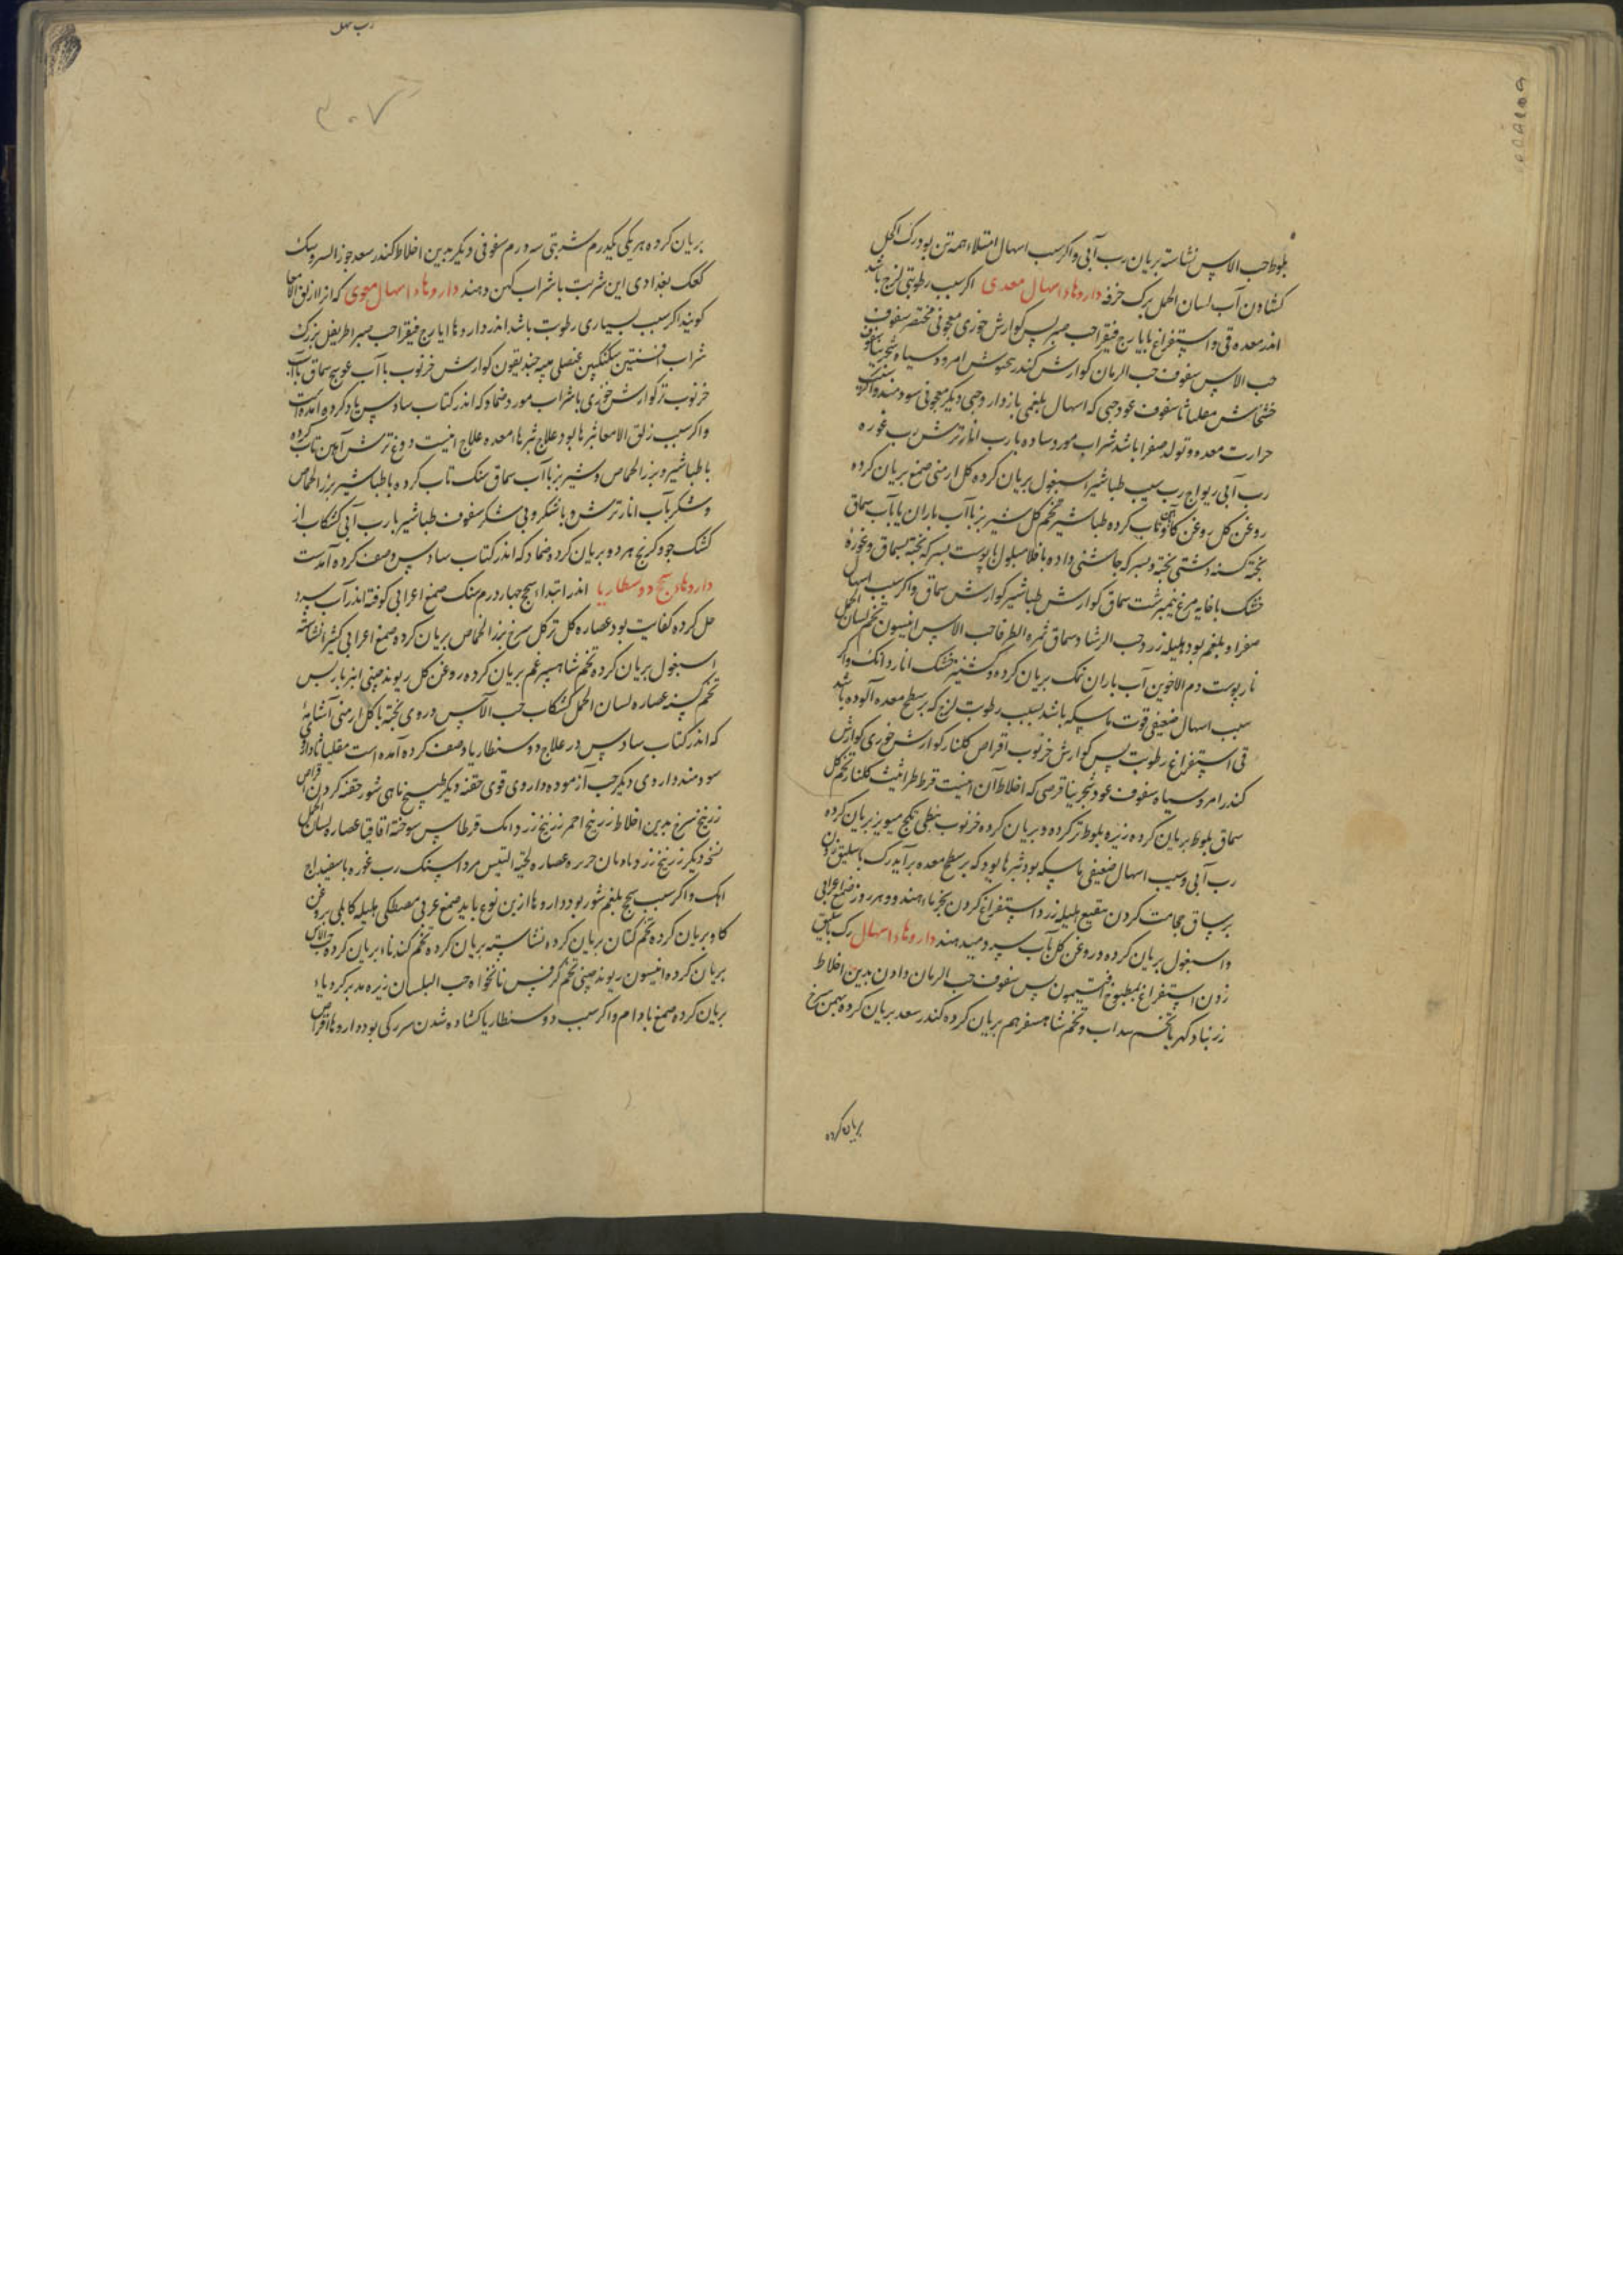 بلوط حب الاس نشاسته بریان رب آبی واکر سبب اسهال امتلاء همه تن بود رک اکحل
کشادن آب لسان الحمل برک خرفه داروهاء اسهال معدی اکر سبب رطوبتی لزج باشد
اندر معده قی و استفراغ با یارج فیقرا حب صبر پس کوارش خوزی معجونی مختصر سفوف
حب الاس سفوف حب الرمان کوارش کندر امرود سیاه
خشخاش مقلیاثا سفوف عود حبی که اسهال بلغمی باز دارد حبی دیکر معجونی سودمند
حرارت معده و تولد صفرا باشد شراب مورد ساده یا رب انار ترش رب غوره
رب آبی ریواج رب سیب طباشیر اسبغول بریان کرده کل ارمنی صمغ بریان کرده
روغن کل روغن کاو تاب کرده طباشیر تخم کل شیر بز با آب باران یا با آب سماق
پخته بسرکه جاشنی داده پوست بسرکه پخته سماق و غوره
خشک با خایه مرغ نیمبرشت سماق کوارش طباشیر کوارش سماق واکر سبب اسهال
صفرا و بلغم بود هلیله زرد حب الرشاد سماق ثمره الطرفا حب الاس انیسون تخم لسان الحمل
نار پوست دم الاخوین آب باران نمک بریان کرده کشنیز خشک انار دانک واکر
سبب اسهال ضعیفی قوت ماسکه باشد بسبب رطوبت لزج که بر سطح معده آلوده باشد
قی استفراغ رطوبت پس کوارش خرنوب اقراص کلنار کوارش خوزی کوارش
کندر امرود سیاه سفوف عود قرصی که اخلاط آن اینست قرط طراثیث کلنار تخم کل
سماق بلوط بریان کرده زیره بلوط تر کرده و بریان کرده خرنوب نبطی مویز بریان کرده
رب آبی و سیب اسهال ضعیفی ماسکه بود بثرها بود که بر سطح معده برآید رک باسلیق زدن
بر ساق حجامت کردن نقیع هلیله زرد استفراغ کردن و هر روز صمغ اعرابی
و اسبغول بریان کرده و روغن کل بآب سرد میدهند داروهاء اسهال رک باسلیق
زدن استفراغ بمطبوخ افتیمون پس سفوف حب الرمان دادن بدین اخلاط
زرنباد کهربا تخم سداب و تخم شاهسفرهم بریان کرده کندر سعد بریان کرده بهمن سرخ
بریان کرده
۳۰۷
بریان کرده هر یکی یکدرم شربتی سه درم سفوفی دیکر بدین اخلاط کندر سعد جوز السرو سک
کعک بغدادی این شربت با شراب کهن دهند داروهاء اسهال معوی که انرا زلق الامعا
کویند اکر سبب بسیاری رطوبت باشد اندر داروها ایارج فیقرا حب صبر اطریفل بزرک
شراب افسنتین سکنکبین عنصلی میبه کوارش خرنوب با آب عوسج سماق با آب
خرنوب تر کوارش خوزی با شراب مورد ضماد که اندر کتاب سادس یاد کرده آمده است
واکر سبب زلق الامعا بثرها بود علاج بثرهاء معده علاج اینست دوغ ترش آهن تاب کرده
با طباشیر و بزر الحماض و شیر بز با آب سماق سنک تاب کرده با طباشیر بزر الحماض
و شکر بآب انار ترش و باشکر و بی شکر سفوف طباشیر با رب آبی کشکاب از
کشک جو و کرنج هر دو بریان کرده ضماد که اندر کتاب سادس وصف کرده آمدست
داروهاء سحج دوسنطاریا اندر ابتداء سحج چهار درم سنک صمغ اعرابی کوفته اندر آب سرد
حل کرده کفایت بود عصاره کل تر کل سرخ بزر الحماض بریان کرده صمغ اعرابی کثیرا نشاسته
اسبغول بریان کرده تخم شاهسبرغم بریان کرده روغن کل ریوند چینی انبرباریس
تخم عصاره لسان الحمل کشکاب حب الآس در وی پخته با کل ارمنی
که اندر کتاب سادس در علاج دوسنطاریا وصف کرده آمده است مقلیاثا
سودمند داروی دیکر حب آزموده داروی قوی حقنه دیکر طبیخ ماهی شور حقنه کردن اقراص
زرنیخ نسخ بدین اخلاط زرنیخ احمر زرنیخ زرد اهک قرطاس سوخته اقاقیا عصاره لسان الحمل
نسخه دیکر زرنیخ زرد عصاره لحیة التیس مرداسنک رب غوره با سفیداج
اهک واکر سبب سحج بلغم شور بود داروها ازین نوع باید صمغ عربی مصطکی هلیله کابلی بروغن
کاو بریان کرده تخم کتان بریان کرده نشاسته بریان کرده تخم کندنا بریان کرده حب الاس
بریان کرده انیسون ریوند چینی تخم کرفس نانخواه حب البلسان زیره مدبر کرویاء
بریان کرده صمغ بادام واکر سبب دوسنطاریا کشاده شدن سر رکی بود داروها اقراص